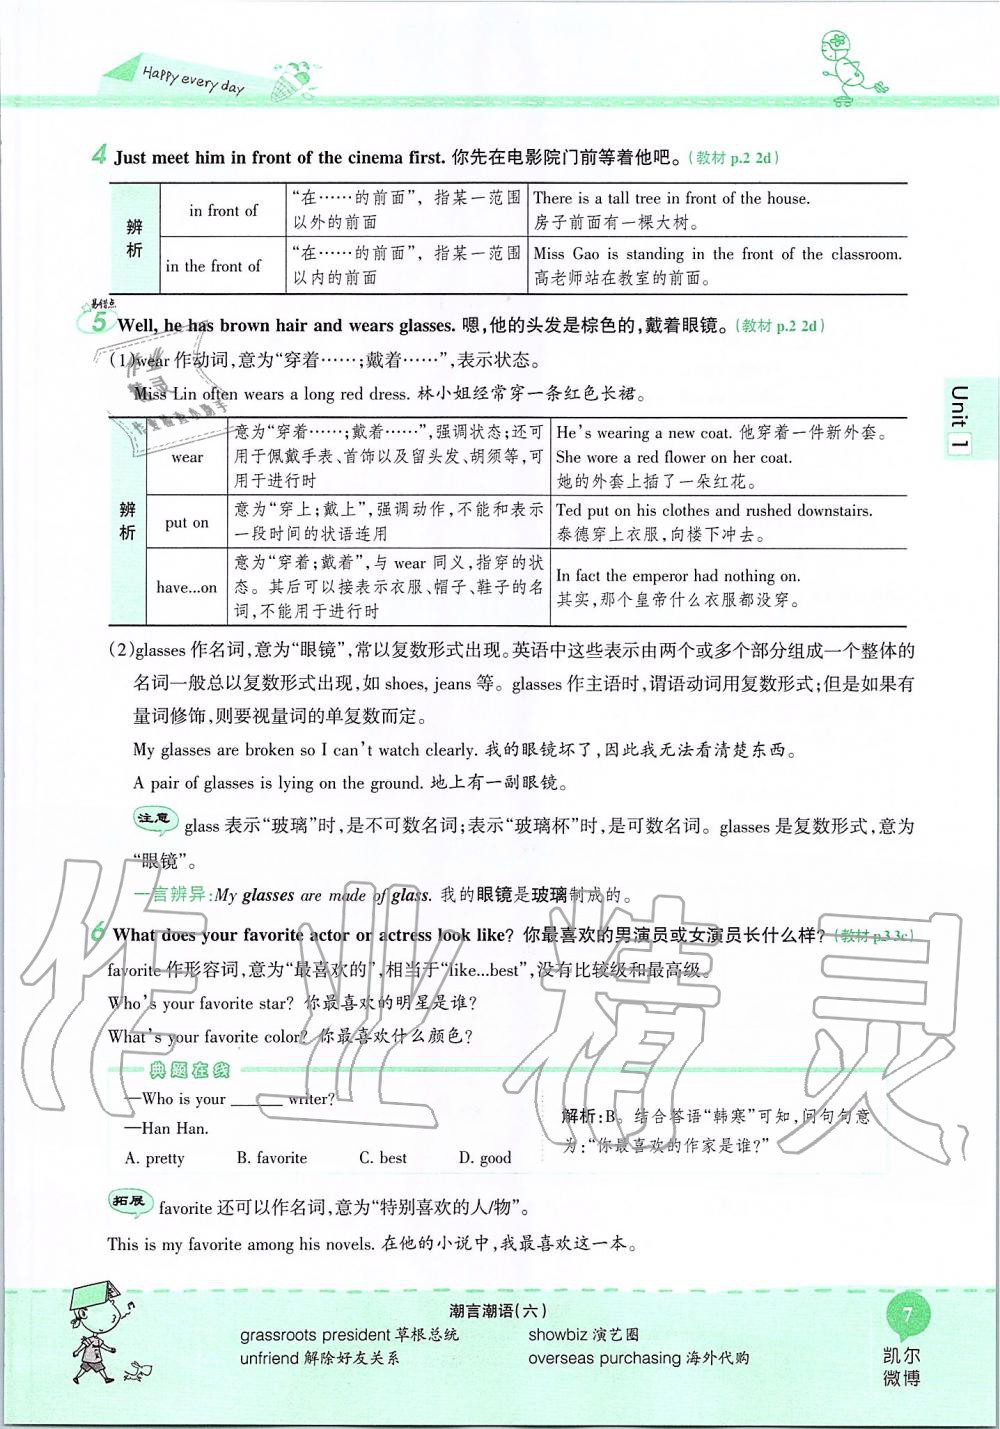 Happy every day
4 Just meet him in front of the cinema first. 你先在电影院门前等着他吧。(教材 p.2 2d)
辨析
in front of
“在……的前面”，指某一范围
以外的前面
There is a tall tree in front of the house.
房子前面有一棵大树。
in the front of
“在……的前面”，指某一范围
以内的前面
Miss Gao is standing in the front of the classroom.
高老师站在教室的前面。
易错点
5 Well, he has brown hair and wears glasses. 嗯,他的头发是棕色的,戴着眼镜。(教材 p.2 2d)
(1)wear 作动词,意为“穿着……;戴着……”,表示状态。
Miss Lin often wears a long red dress. 林小姐经常穿一条红色长裙。
Unit 1
辨析
wear
意为“穿着……;戴着……”,强调状态;还可
用于佩戴手表、首饰以及留头发、胡须等,可
用于进行时
He's wearing a new coat. 他穿着一件新外套。
She wore a red flower on her coat.
她的外套上插了一朵红花。
put on
意为“穿上;戴上”,强调动作,不能和表示
一段时间的状语连用
Ted put on his clothes and rushed downstairs.
泰德穿上衣服,向楼下冲去。
have...on
意为“穿着;戴着”,与 wear 同义,指穿的状
态。其后可以接表示衣服、帽子、鞋子的名
词,不能用于进行时
In fact the emperor had nothing on.
其实,那个皇帝什么衣服都没穿。
(2)glasses 作名词,意为“眼镜”,常以复数形式出现。英语中这些表示由两个或多个部分组成一个整体的
名词一般总以复数形式出现,如 shoes, jeans 等。glasses 作主语时,谓语动词用复数形式;但是如果有
量词修饰,则要视量词的单复数而定。
My glasses are broken so I can't watch clearly. 我的眼镜坏了,因此我无法看清楚东西。
A pair of glasses is lying on the ground. 地上有一副眼镜。
注意 glass 表示“玻璃”时,是不可数名词;表示“玻璃杯”时,是可数名词。glasses 是复数形式,意为
“眼镜”。
一言辨异:My glasses are made of glass. 我的眼镜是玻璃制成的。
6 What does your favorite actor or actress look like? 你最喜欢的男演员或女演员长什么样?(教材 p.3 3c)
favorite 作形容词,意为“最喜欢的”,相当于“like...best”,没有比较级和最高级。
Who's your favorite star? 你最喜欢的明星是谁?
What's your favorite color? 你最喜欢什么颜色?
典题在线
—Who is your ______ writer?
—Han Han.
A. pretty B. favorite C. best D. good
解析:B。结合答语“韩寒”可知,问句句意
为:“你最喜欢的作家是谁?”
拓展 favorite 还可以作名词,意为“特别喜欢的人/物”。
This is my favorite among his novels. 在他的小说中,我最喜欢这一本。
潮言潮语(六)
grassroots president 草根总统 showbiz 演艺圈
unfriend 解除好友关系 overseas purchasing 海外代购
7
凯尔
微博
作业精灵